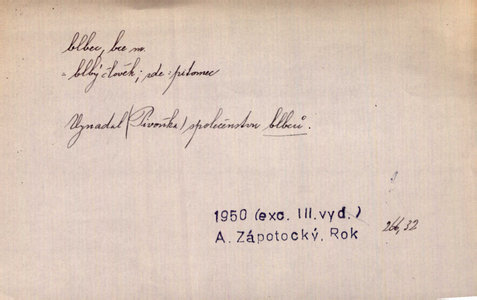 blbec, bce m.
= blbý člověk; zde: pitomec
Vynadal (Pivoňka) společenstvu blbců.
1950 (exc. III. vyd.)
A. Zápotocký, Rok
266,32